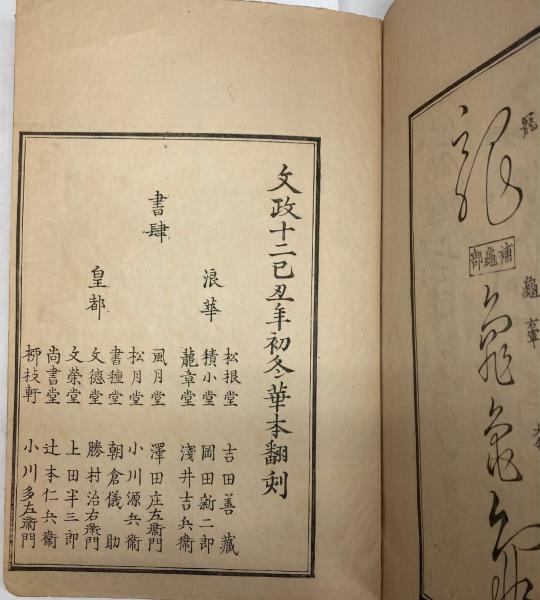 文政十二己丑年初冬華本翻刻
書肆
浪華
松根堂 吉田善藏
積小堂 岡田新二郎
龍章堂 淺井吉兵衞
皇都
風月堂 澤田庄左衞門
松月堂 小川源兵衞
書種堂 朝倉儀助
文德堂 勝村治右衞門
文榮堂 上田半三郎
尚書堂 辻本仁兵衞
柳枝軒 小川多左衞門
龍
補龜部
龜